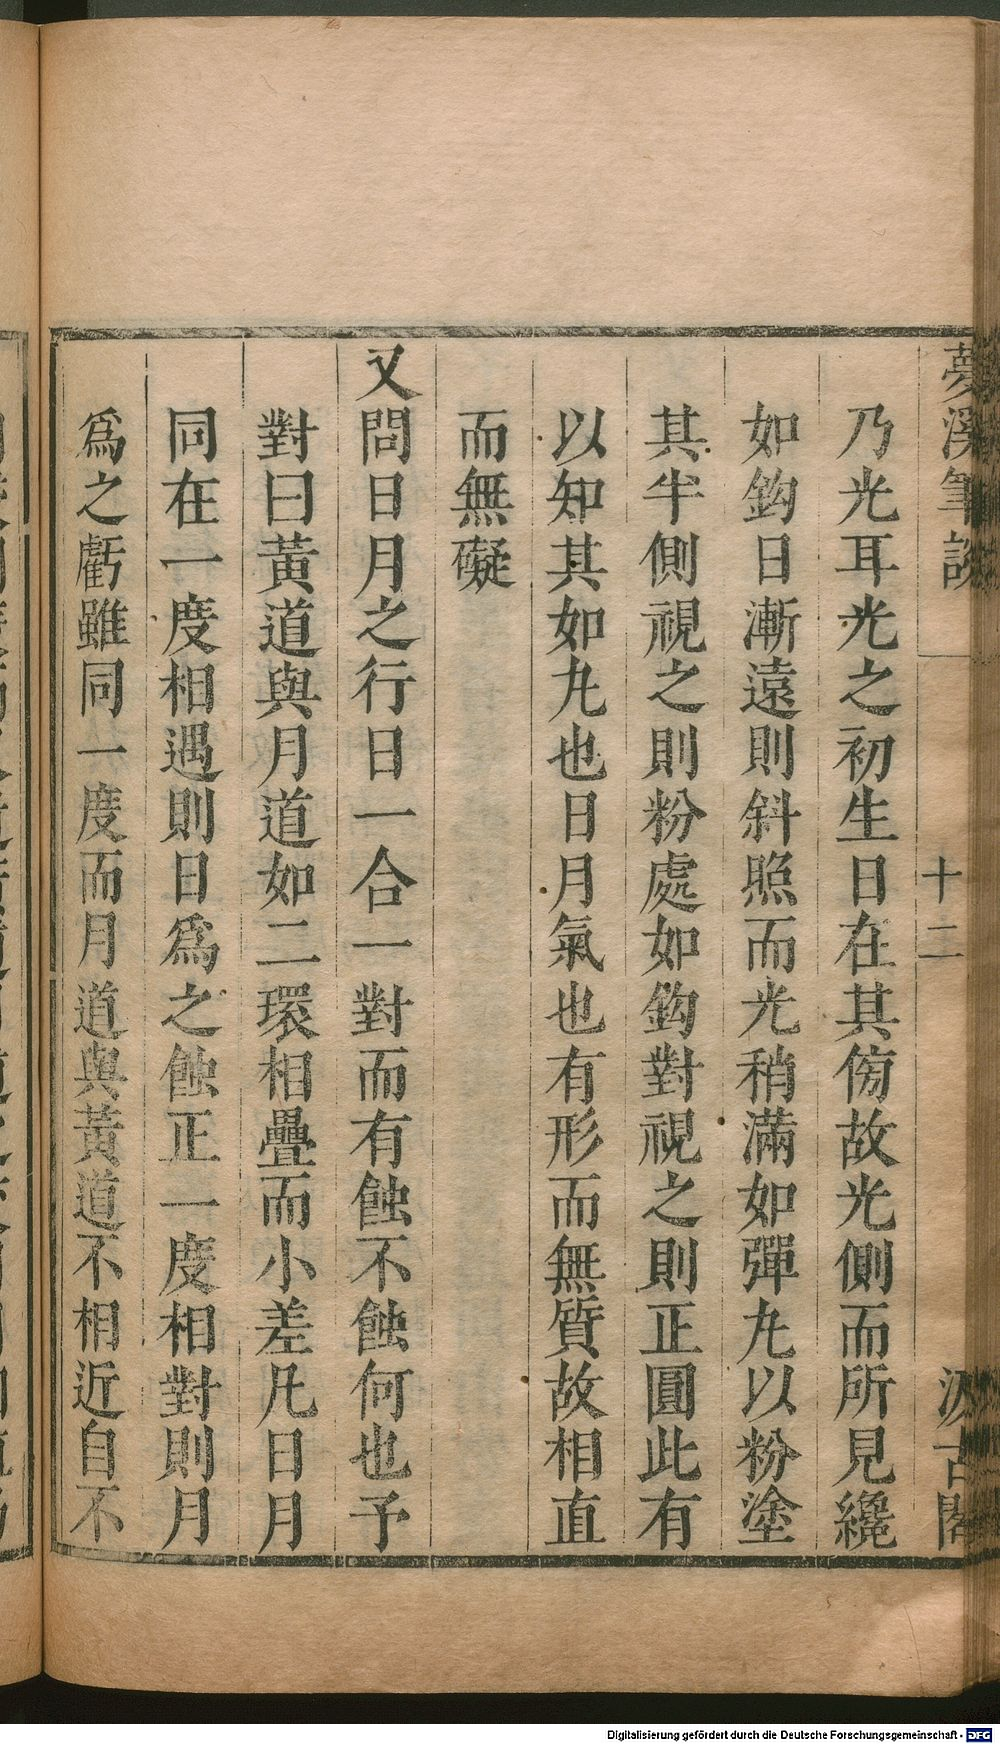 夢溪筆談 十二 汲古閣
乃光耳光之初生日在其傍故光側而所見纔
如鈎日漸遠則斜照而光稍滿如彈丸以粉塗
其半側視之則粉處如鈎對視之則正圓此有
以知其如丸也日月氣也有形而無質故相直
而無礙
又問日月之行日一合一對而有蝕不蝕何也予
對曰黃道與月道如二環相疊而小差凡日月
同在一度相遇則日爲之蝕正一度相對則月
爲之虧雖同一度而月道與黃道不相近自不
Digitalisierung gefördert durch die Deutsche Forschungsgemeinschaft - DFG